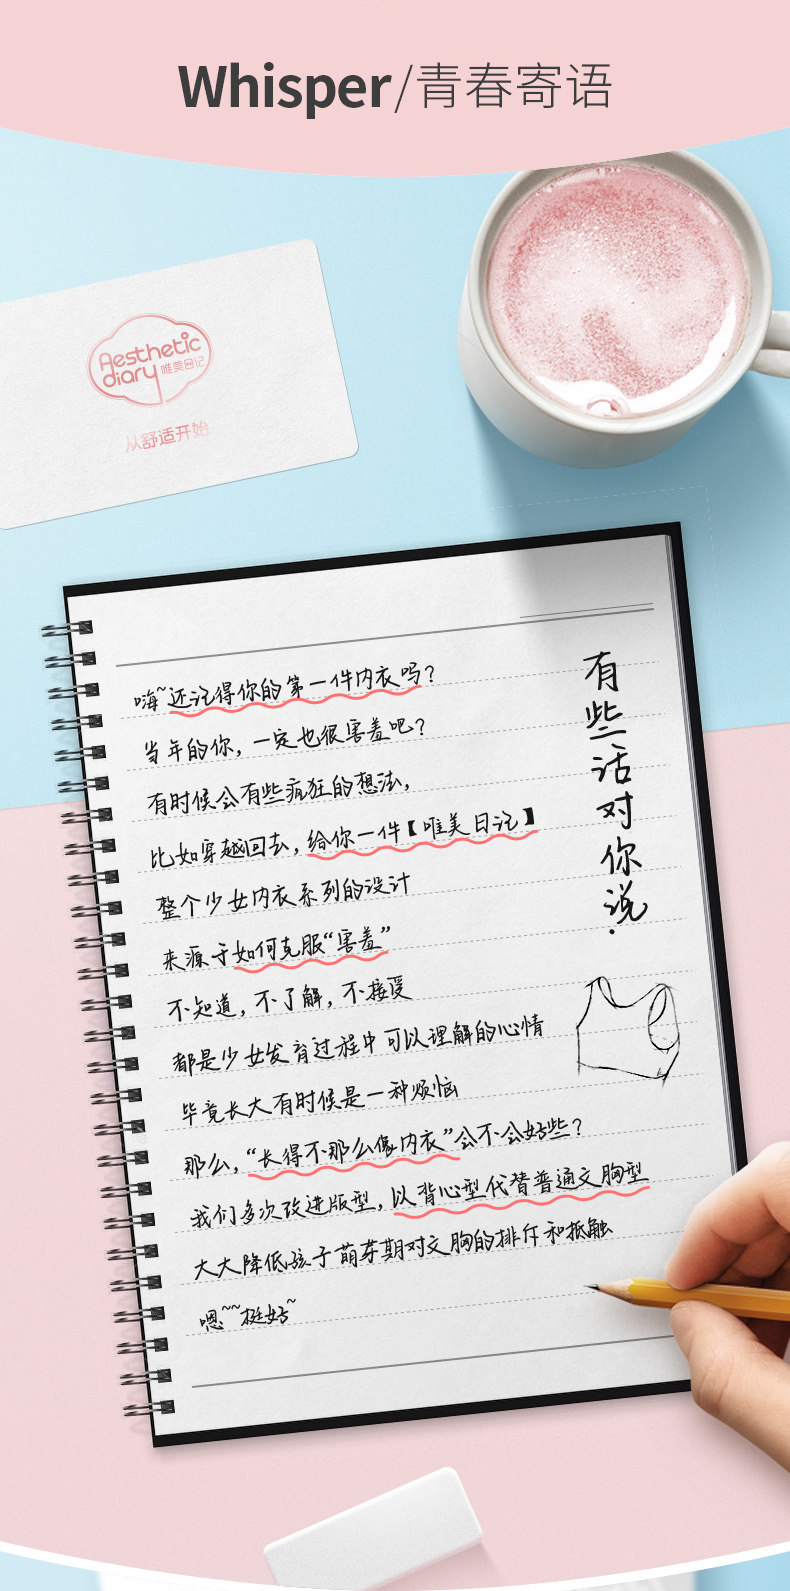 Whisper/青春寄语
Aesthetic
diary 唯美日记
从舒适开始
嗨~还记得你的第一件内衣吗？
当年的你，一定也很害羞吧？
有时候会有些疯狂的想法，
比如穿越回去，给你一件【唯美日记】
整个少女内衣系列的设计
来源于如何克服“害羞”
不知道，不了解，不接受
都是少女发育过程中可以理解的心情
毕竟长大有时候是一种烦恼
那么，“长得不那么像内衣”会不会好些？
我们多次改进版型，以背心型代替普通文胸型
大大降低孩子萌芽期对文胸的排斥和抵触
嗯~~挺好~
有些话对你说.